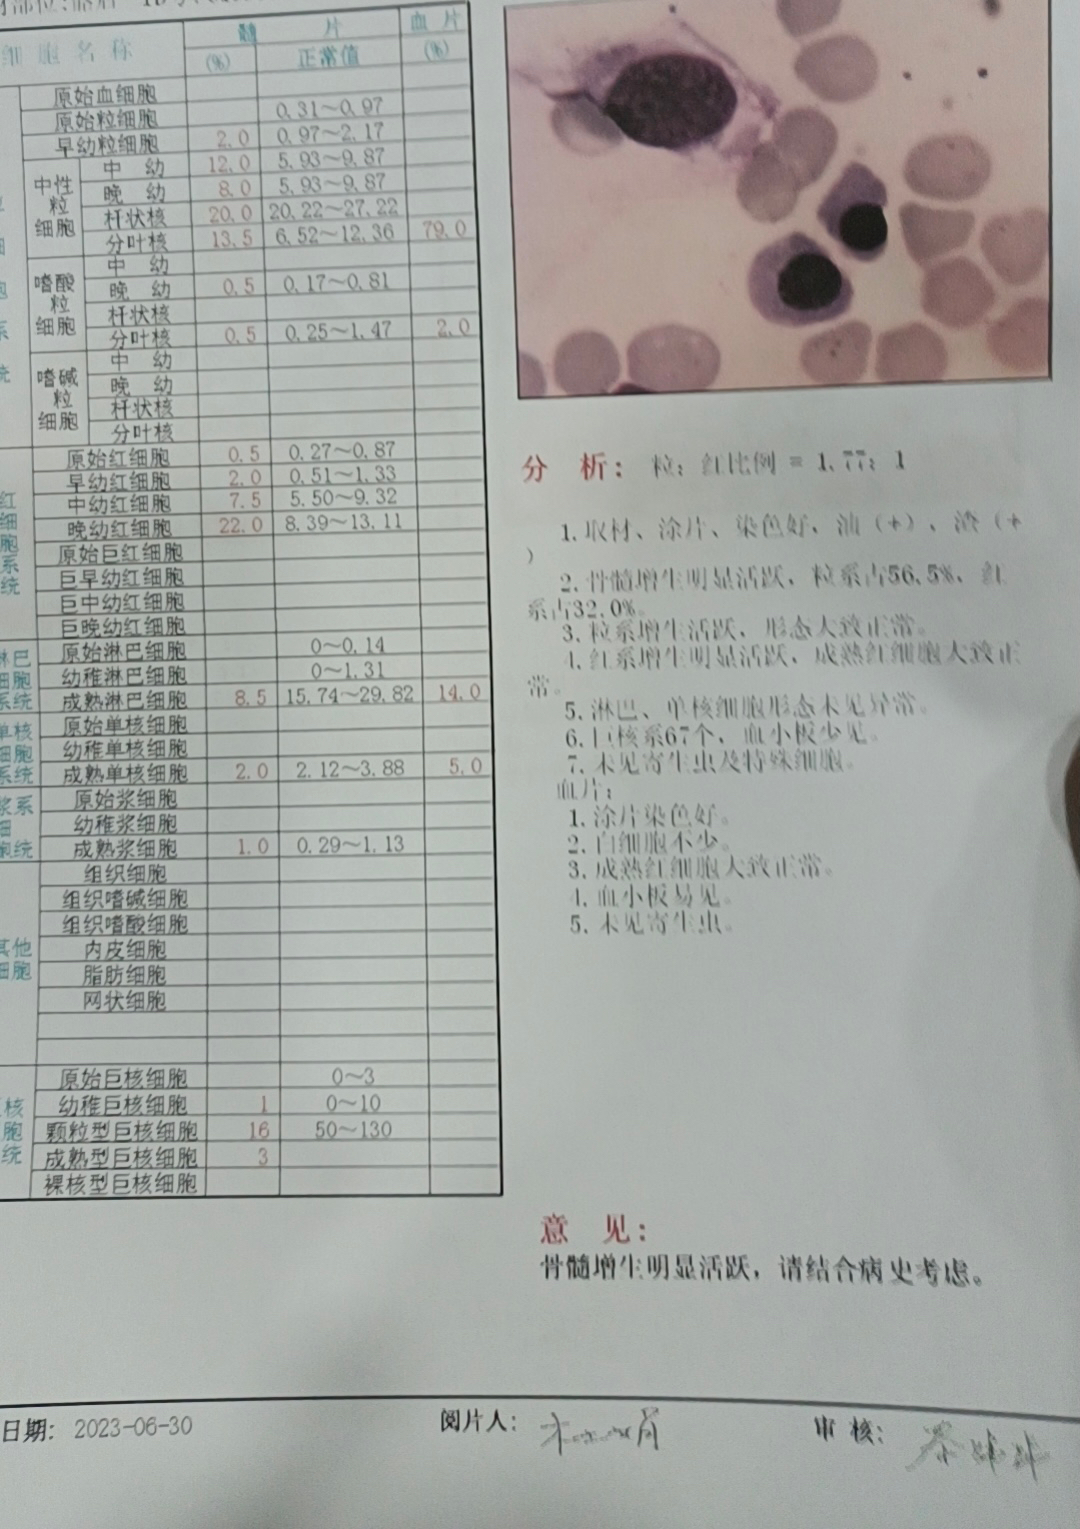 细胞名称 髓 片 血 片
(%) 正常值 (%)
原始血细胞
原始粒细胞 0.31~0.97
早幼粒细胞 2.0 0.97~2.17
中性粒细胞 中 幼 12.0 5.93~9.87
晚 幼 8.0 5.93~9.87
杆状核 20.0 20.22~27.22
分叶核 13.5 6.52~12.36 79.0
嗜酸粒细胞 中 幼
晚 幼 0.5 0.17~0.81
杆状核
分叶核 0.5 0.25~1.47 2.0
嗜碱粒细胞 中 幼
晚 幼
杆状核
分叶核
红细胞系统 原始红细胞 0.5 0.27~0.87
早幼红细胞 2.0 0.51~1.33
中幼红细胞 7.5 5.50~9.32
晚幼红细胞 22.0 8.39~13.11
原始巨红细胞
巨早幼红细胞
巨中幼红细胞
巨晚幼红细胞
淋巴细胞系统 原始淋巴细胞 0~0.14
幼稚淋巴细胞 0~1.31
成熟淋巴细胞 8.5 15.74~29.82 14.0
单核细胞系统 原始单核细胞
幼稚单核细胞
成熟单核细胞 2.0 2.12~3.88 5.0
浆系细胞统 原始浆细胞
幼稚浆细胞
成熟浆细胞 1.0 0.29~1.13
其他细胞 组织细胞
组织嗜碱细胞
组织嗜酸细胞
内皮细胞
脂肪细胞
网状细胞
核胞统 原始巨核细胞 0~3
幼稚巨核细胞 1 0~10
颗粒型巨核细胞 16 50~130
成熟型巨核细胞 3
裸核型巨核细胞
分 析: 粒:红比例 = 1.77:1
1.取材、涂片、染色好,油(+)、渣(+
)
2.骨髓增生明显活跃,粒系占56.5%,红
系占32.0%。
3.粒系增生活跃,形态大致正常。
4.红系增生明显活跃,成熟红细胞大致正
常。
5.淋巴、单核细胞形态未见异常。
6.巨核系67个,血小板少见。
7.未见寄生虫及特殊细胞。
血片:
1.涂片染色好。
2.白细胞不少。
3.成熟红细胞大致正常。
4.血小板易见。
5.未见寄生虫。
意 见:
骨髓增生明显活跃,请结合病史考虑。
日期: 2023-06-30 阅片人: 审 核: